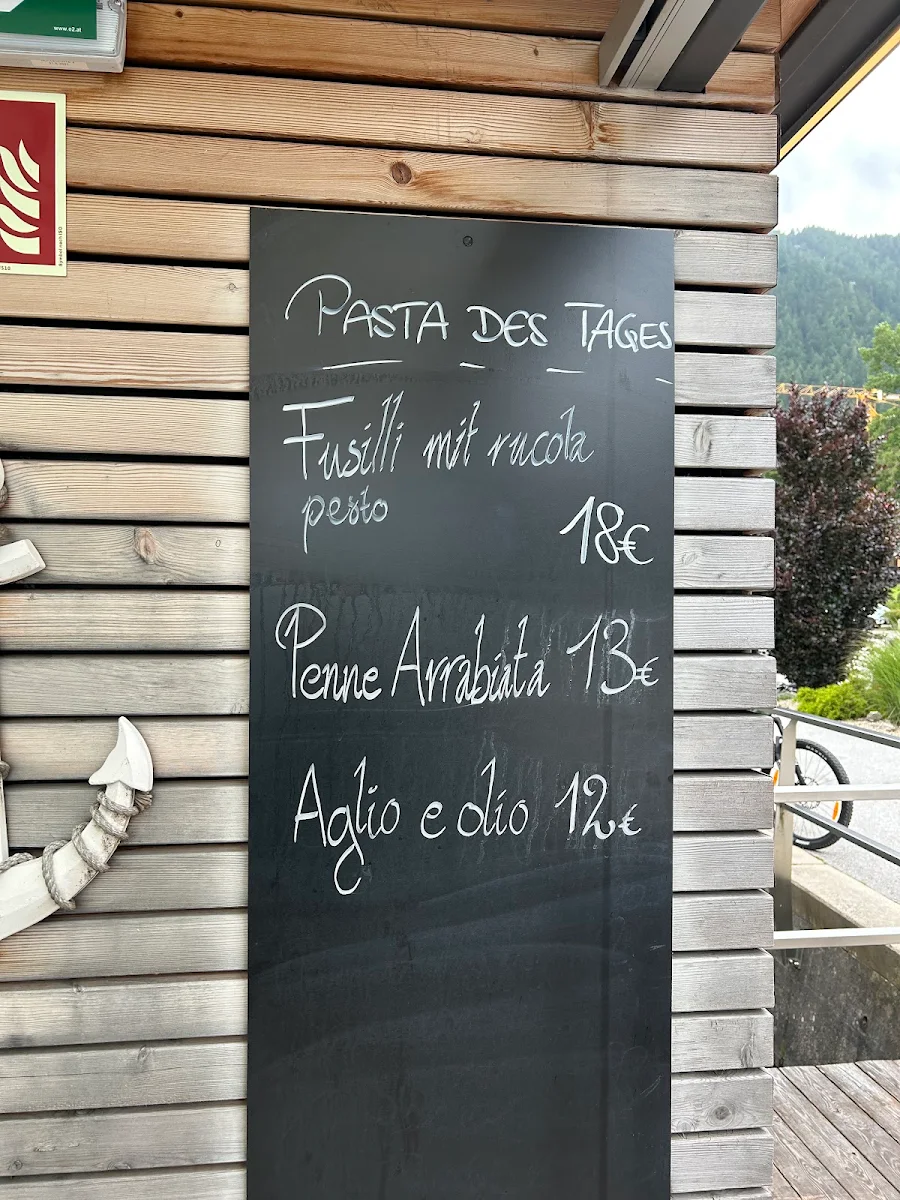 www.e2.at
Symbol nach ISO
PASTA DES TAGES
Fusilli mit rucola
pesto
18€
Penne Arrabiata 13€
Aglio e olio 12€